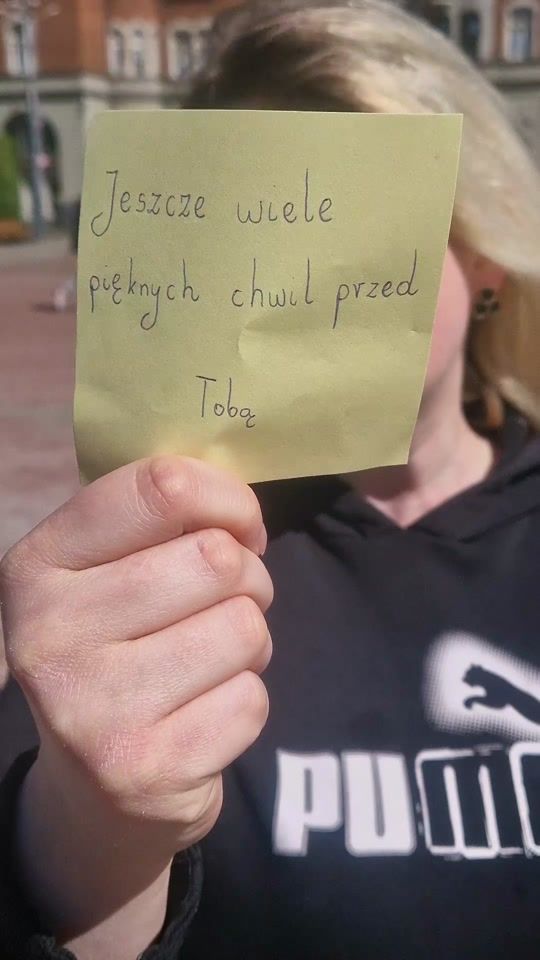 Jeszcze wiele
pięknych chwil przed
Tobą
PUM